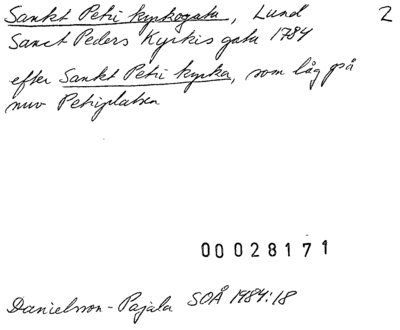 Sankt Petri kyrkogata, Lund 2
Sanct Peders Kyrkis gata 1784
efter Sankt Petri kyrka, som låg på
nuv Petriplatsen
00028171
Danielsson-Pajala SOÅ 1984:18